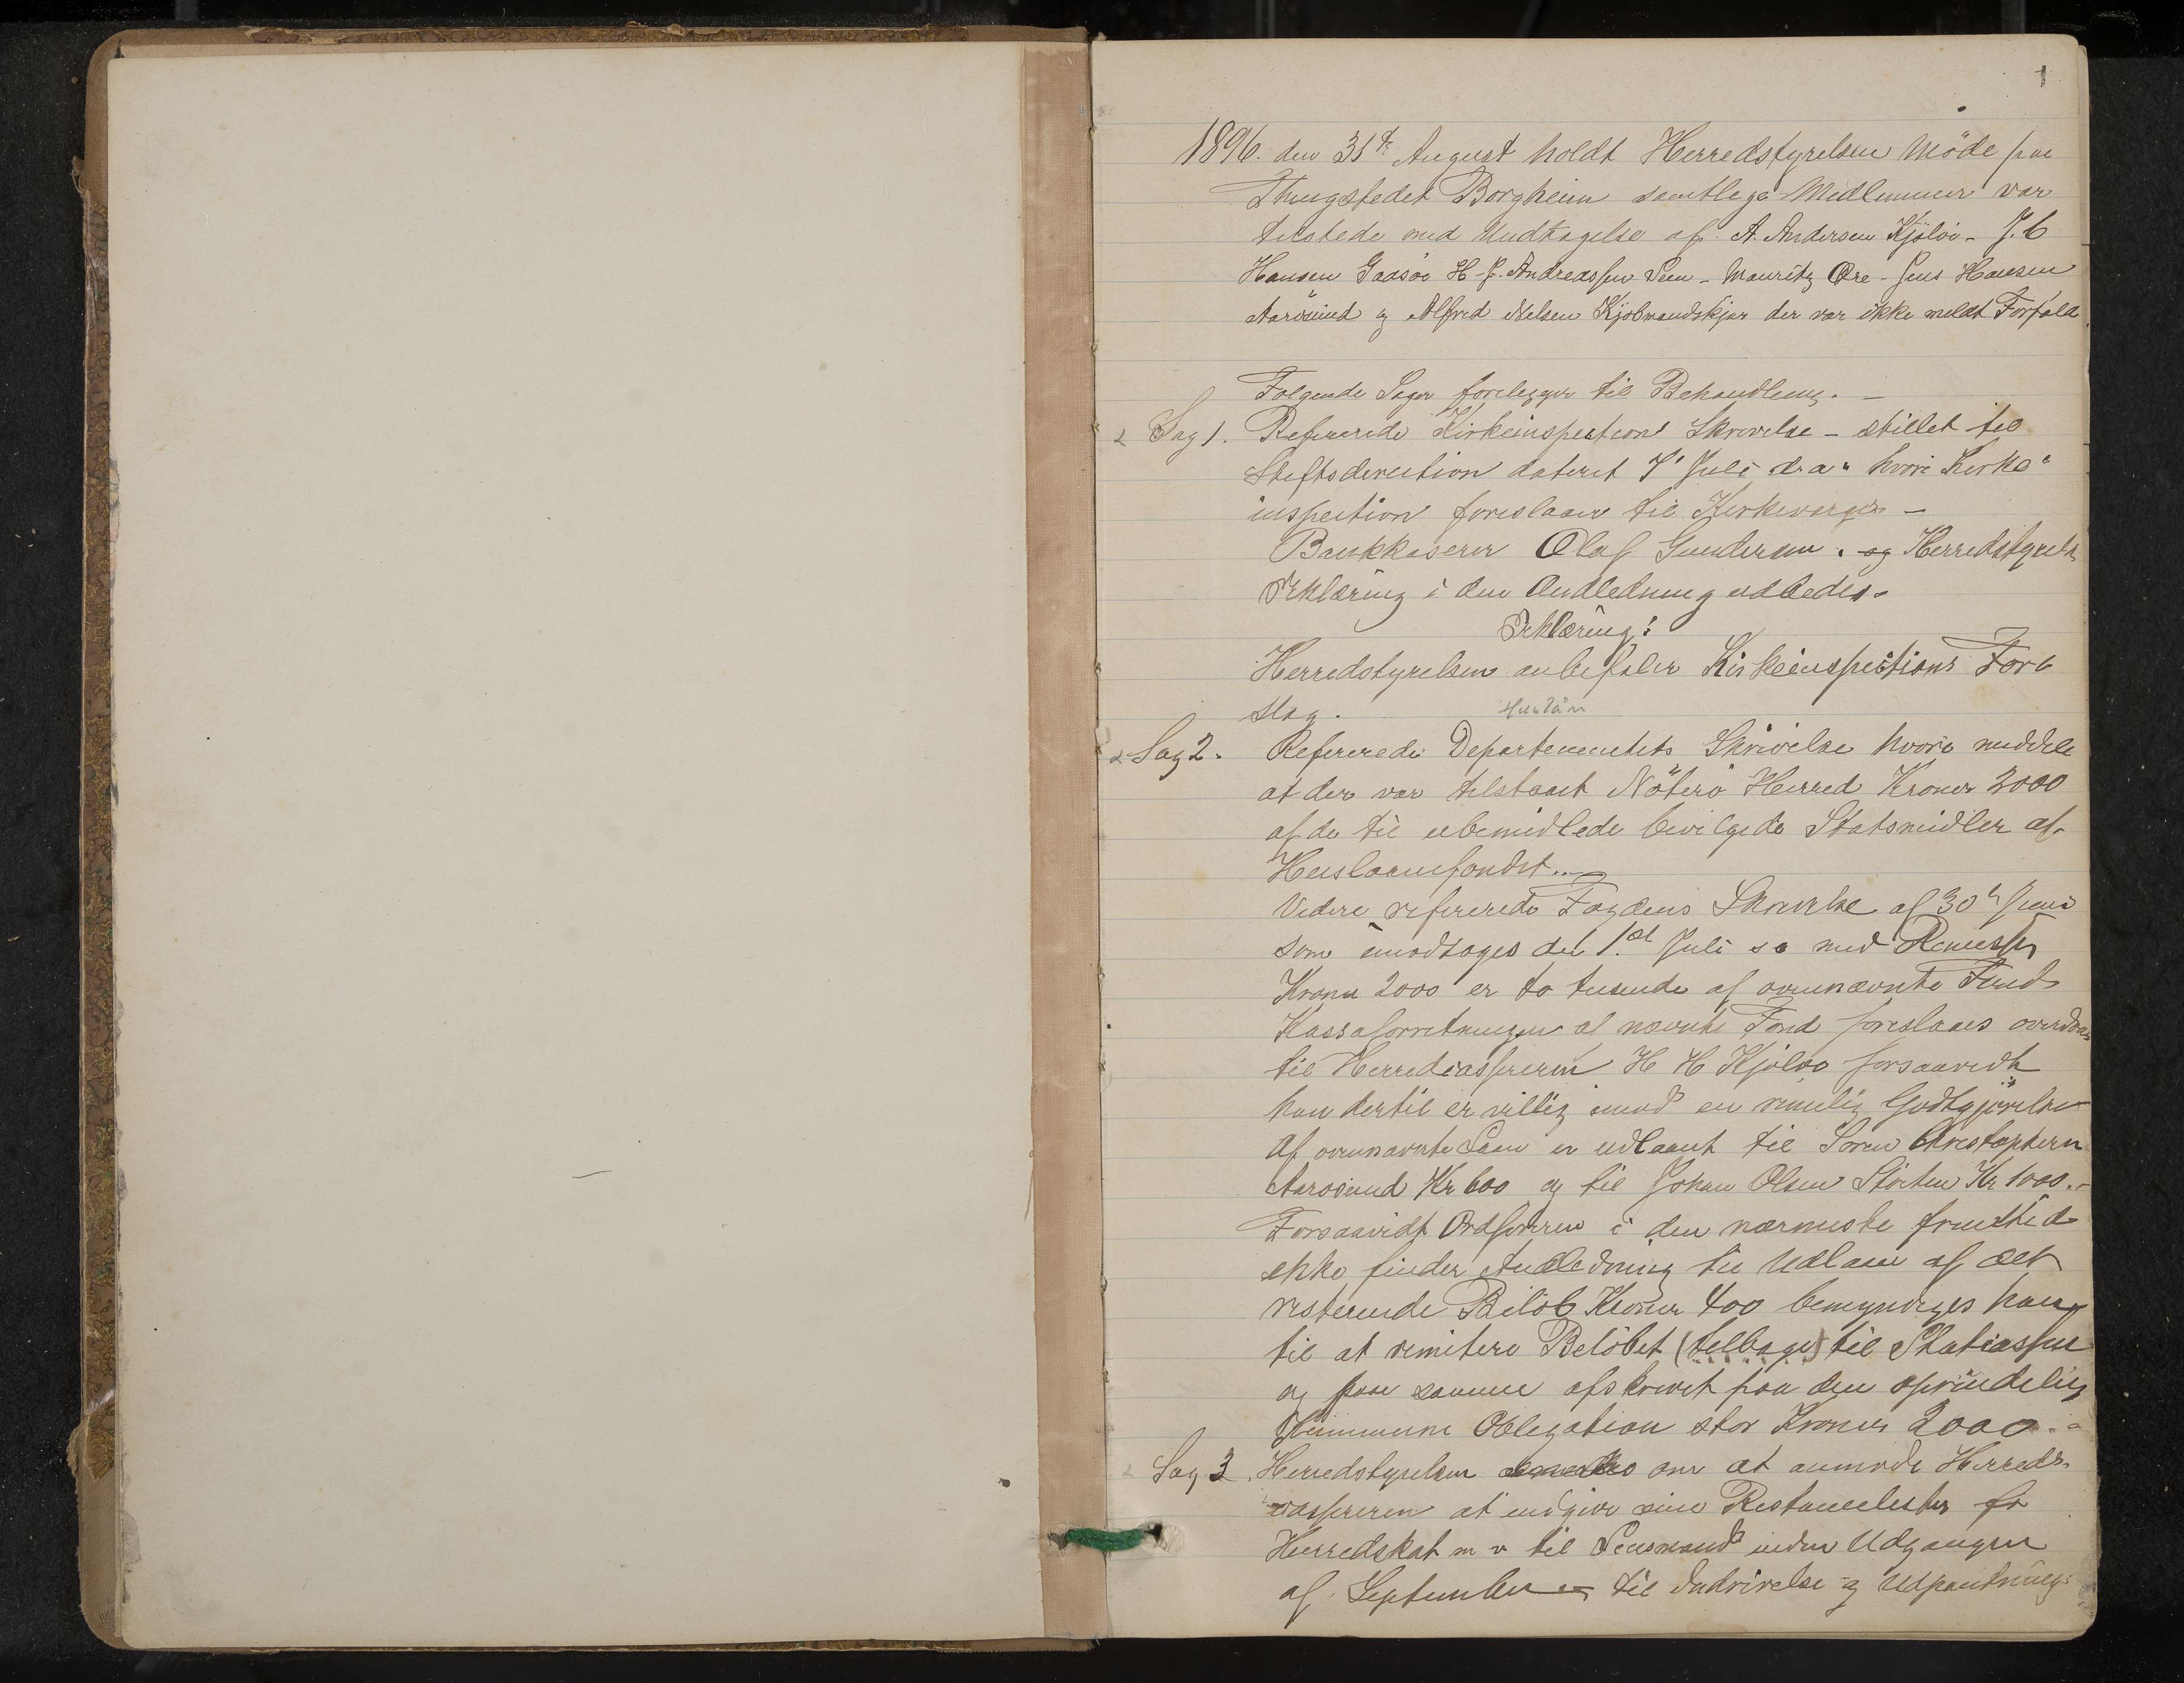 1
1896. den 31te August holdt Herredstyrelsen Möde paa
Thingstedet Borgheim samtlege Medlemmer var
tilstede med Undtagelse af A. Andersen Kjölöi - J. C
Hansen Gaasöe H. J. Andreassen Seem - Mauritz Øre - Jens Hansen
Aarösund og Alfred Nelsen Kjöbmandskjær der var ikke meldt Forfald
Følgende Sager forelegger til Behandleng. -
Sag 1. Refererede Kirkeinspektions Skrivelse - stillet til
Stiftsdirection dateret 7' Juli d. a. hvori Kirke-
inspection foreslaaer til Kirkeværger -
Bankkaserer Olaf Gundersen. og Herredstyrels
Erklæring i den Andledning udbedes.
Erklæring:
Herredstyrelsen anbefaler Kirkeinspektions For
slag.
Huslån
Sag 2. Refererede Departementets Skrivelse hvori meddele
at der var telstaaet Nöterö Herred Kroner 2000
af de til ubemidlede bevilgede Statsmidler af
Huslaanefondet.
Videre refererede Fogdens Skrivelse af 30te Juni
som imodtoges den 1st Juli s a med Remesse
Kroner 2000 er to tusende af ovennævnte Fond
Kassaforretningen af nævnte Fond foreslaaes overdrag
til Herredcasserern H H Kjöløe forsaavidt
han dertil er villig imod en rimelig Godtgjörelse
Af ovennævnte Laan er udlaant til Sören Christophersen
Aarosund Kr 600 og til Johan Olsen Störten Kr 1000.-
Forsaavidt Ordføreren i den nærmeste fremtid
ikke finder Andledning til Udlaan af det
resterende Belöb Kroner 400 bemyndiges han
til at remitere Belöbet (telbage) til Statcassen
og faae samme afskrevet paa den oprindelig
Kummune Oblegation stor Kroner 2000.-
Sag 3. Herredstyrelsen om at anmode Herreds-
casserern at indgive sine Restancelister for
Herredskat m v til Lensmand inden Udgangen
af September til Inddrivelse og Udpantning